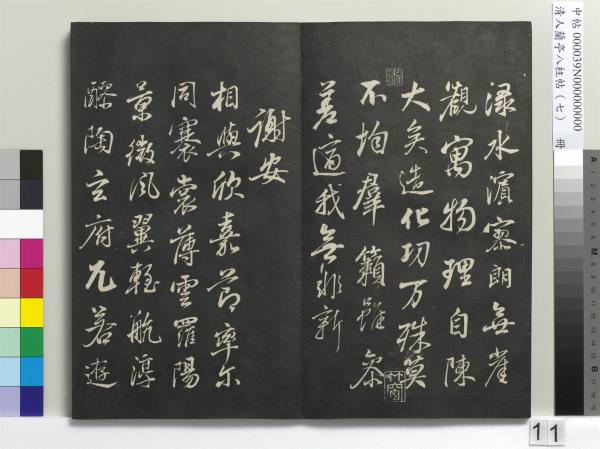 中帖 000039N000000000
清人蘭亭八柱帖（七） 冊
淥水濱寥朗無崖
觀寓物理自陳
大矣造化功万殊莫
不均羣籟雖叅
差適我無非新
謝安
相與欣嘉節率尔
同褰裳薄雲羅陽
景微風翼輕航淳
醪陶玄府兀若遊
11